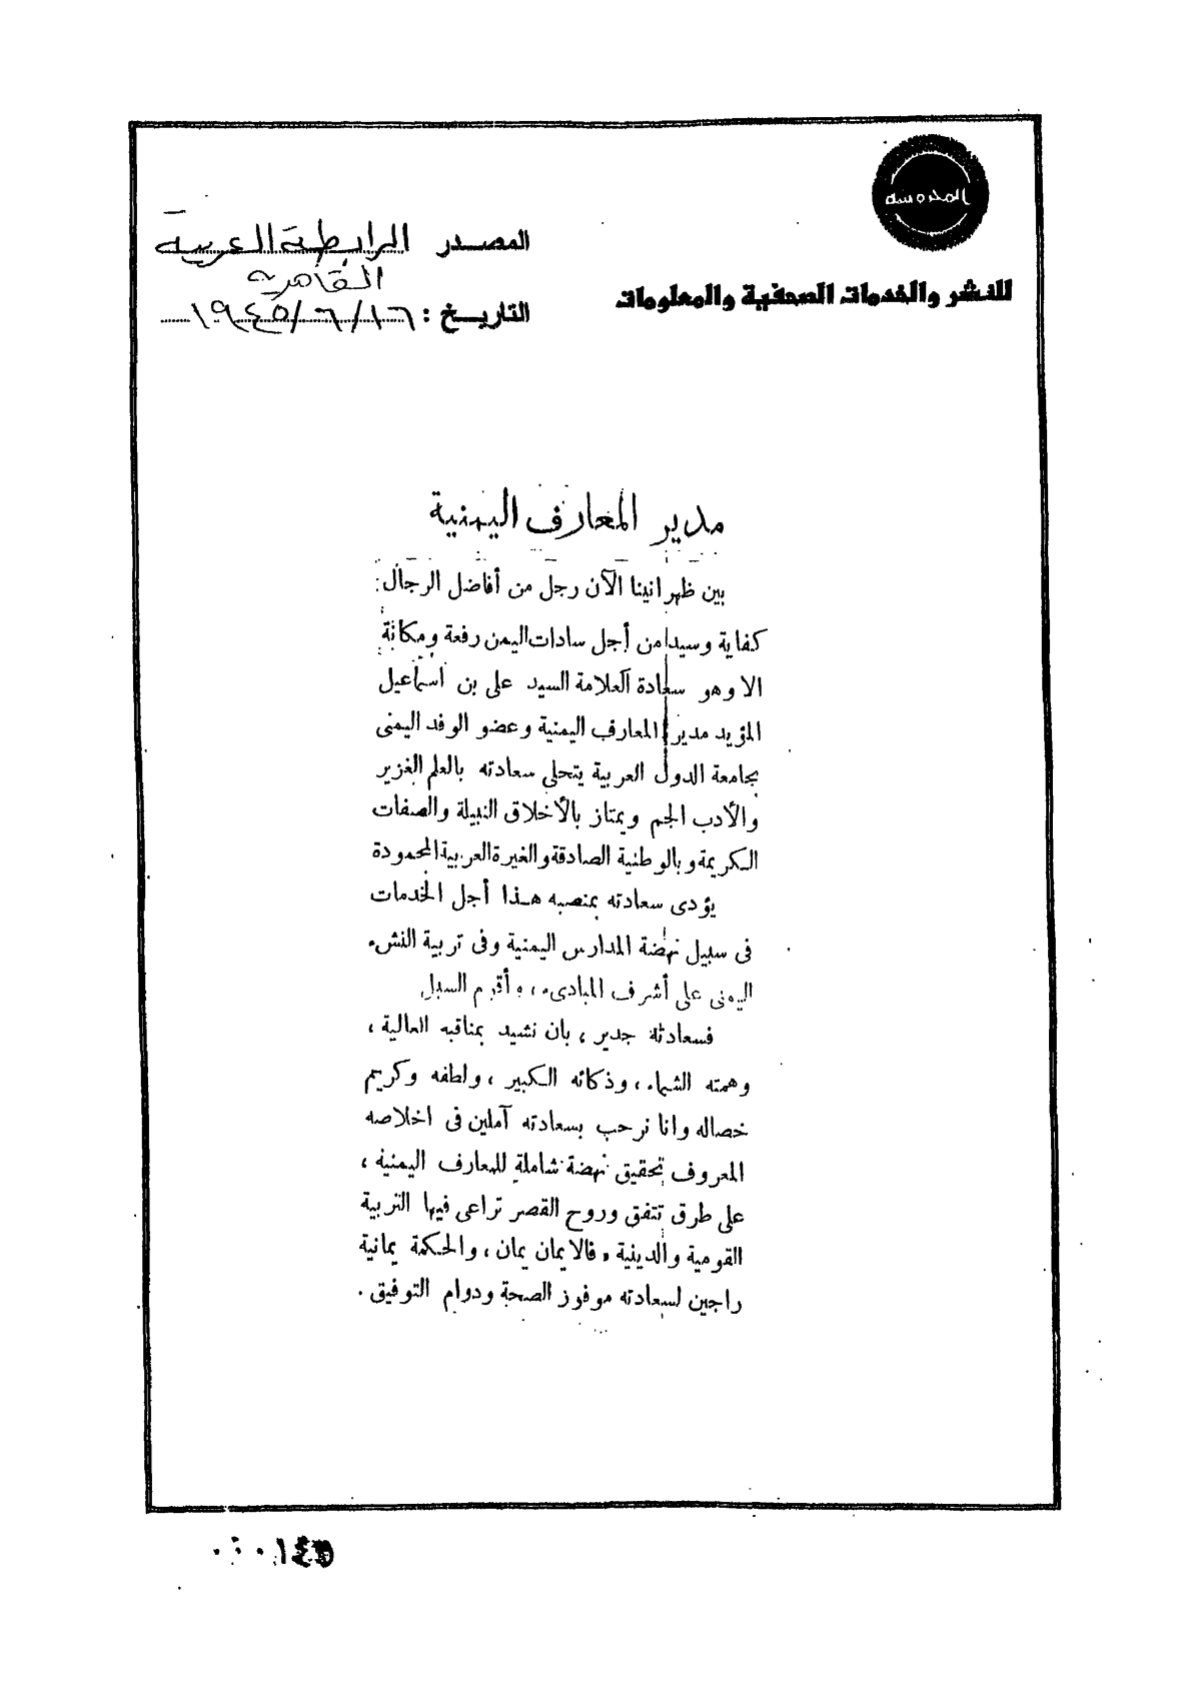 المحروسة
للنشر والخدمات الصحفية والمعلومات
المصدر الرابطة العربية
القاهرية
التاريخ : ١٩٤٥/٦/١٦
مدير المعارف اليمنية
بين ظهرانينا الآن رجل من أفاضل الرجال
كفاية وسيدا من أجل سادات اليمن رفعة ومكانة
الا وهو سعادة العلامة السيد على بن اسماعيل
المؤيد مدير المعارف اليمنية وعضو الوفد اليمنى
بجامعة الدول العربية يتحلى سعادته بالعلم الغزير
والأدب الجم ويمتاز بالأخلاق النبيلة والصفات
الكريمة وبالوطنية الصادقة والغيرة العربية المحمودة
يؤدى سعادته بمنصبه هذا أجل الخدمات
فى سبيل نهضة المدارس اليمنية وفى تربية النشء
اليمنى على أشرف المبادىء ، وأقوم السبل
فسعادته جدير ، بان نشيد بمناقبه العالية ،
وهمته الشماء ، وذكائه الكبير ، ولطفه وكريم
خصاله وانا نرحب بسعادته آملين فى اخلاصه
المعروف تحقيق نهضة شاملة للمعارف اليمنية ،
على طرق تتفق وروح القصر تراعى فيها التربية
القومية والدينية ، فالايمان يمان ، والحكمة يمانية
راجين لسعادته موفوز الصحة ودوام التوفيق .